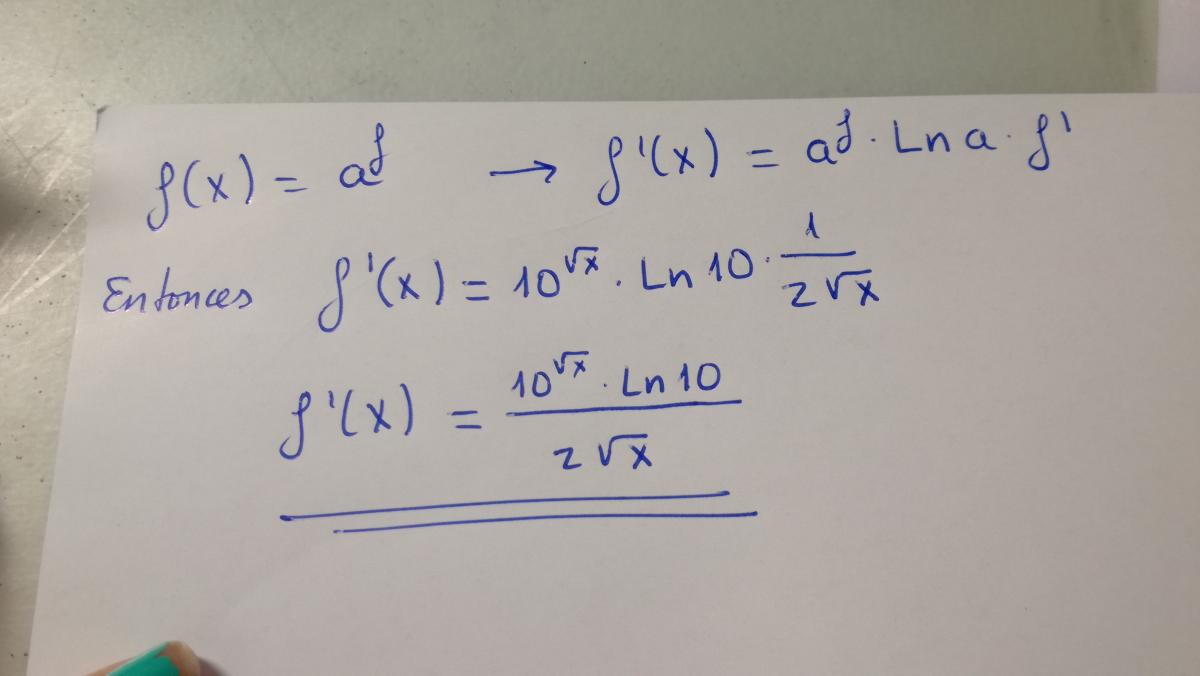 f(x) = a^f → f'(x) = a^f · Ln a · f'
Entonces f'(x) = 10^√x · Ln 10 · 1/(2√x)
f'(x) = (10^√x · Ln 10)/(2√x)